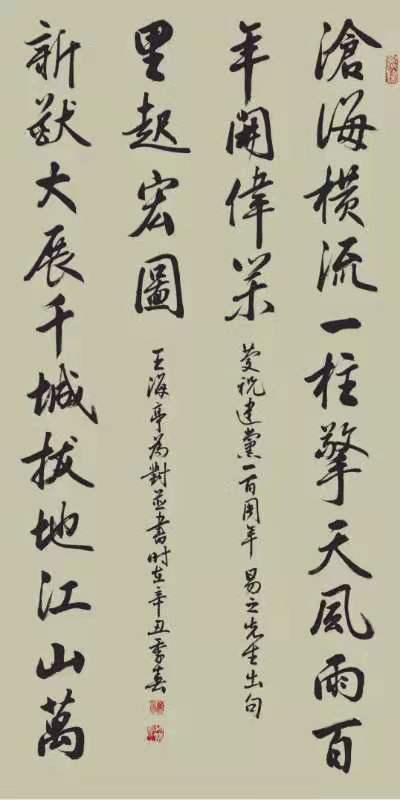 滄海橫流一柱擎天風雨百
年開偉業
慶祝建黨一百周年 易之先生出句
新猷大展千城拔地江山萬
里起宏圖
王海亭為對並書時在辛丑季春